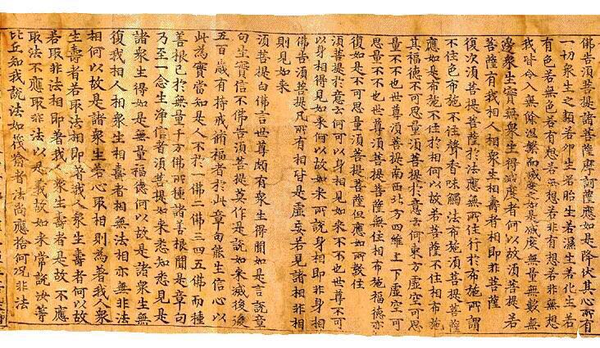 佛告須菩提諸菩薩摩訶薩應如是降伏其心所有
一切衆生之類若卵生若胎生若濕生若化生若
有色若無色若有想若無想若非有想非無想
我皆令入無餘涅槃而滅度之如是滅度無量無數無
邊衆生實無衆生得滅度者何以故須菩提若
菩薩有我相人相衆生相壽者相即非菩薩
復次須菩提菩薩於法應無所住行於布施所謂
不住色布施不住聲香味觸法布施須菩提菩薩
應如是布施不住於相何以故若菩薩不住相布施
其福德不可思量須菩提於意云何東方虛空可思
量不不也世尊須菩提南西北方四維上下虛空可
思量不不也世尊須菩提菩薩無住相布施福德亦
復如是不可思量須菩提菩薩但應如所教住
須菩提於意云何可以身相見如來不不也世尊不可
以身相得見如來何以故如來所說身相即非身相
佛告須菩提凡所有相皆是虛妄若見諸相非相
則見如來
須菩提白佛言世尊頗有衆生得聞如是言說章
句生實信不佛告須菩提莫作是說如來滅後後
五百歲有持戒脩福者於此章句能生信心以
此為實當知是人不於一佛二佛三四五佛而種
善根已於無量千万佛所種諸善根聞是章句
乃至一念生淨信者須菩提如來悉知悉見是
諸衆生得如是無量福德何以故是諸衆生無
復我相人相衆生相壽者相無法相亦無非法
相何以故是諸衆生若心取相則為著我人衆
生壽者若取法相即著我人衆生壽者何以故
若取非法相即著我人衆生壽者是故不應
取法不應取非法以是義故如來常說汝等
比丘知我說法如筏喻者法尚應捨何況非法